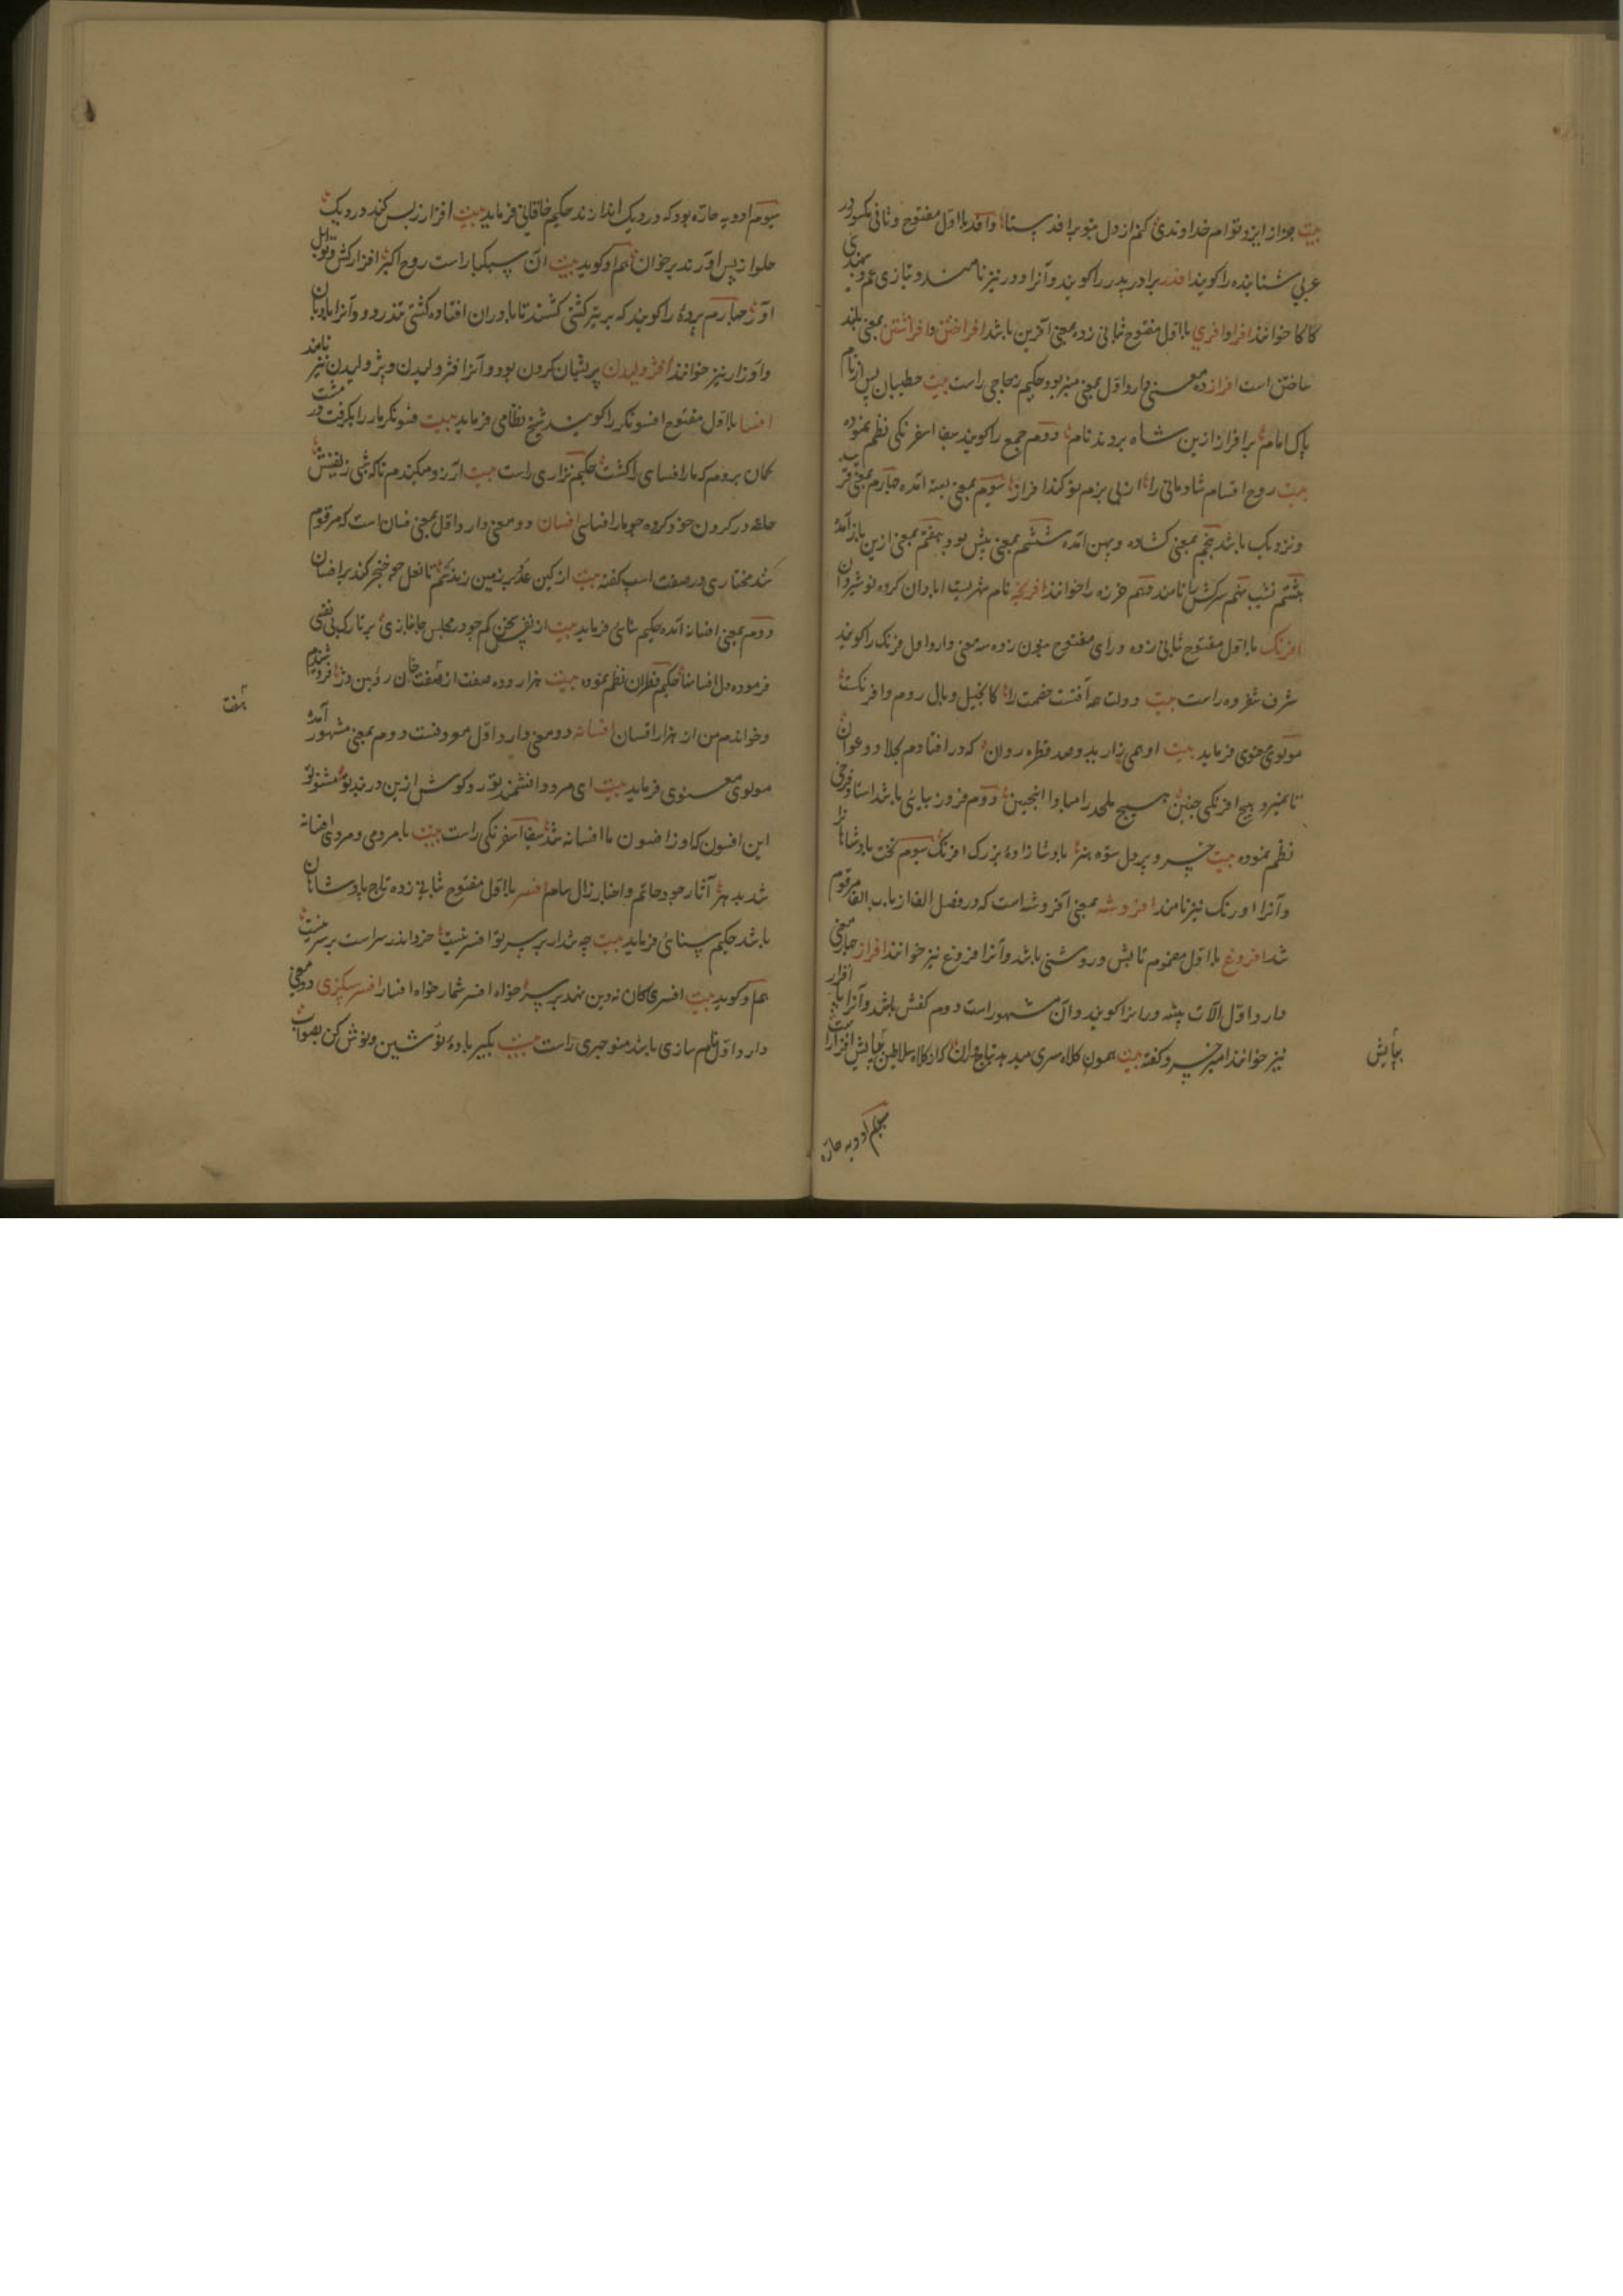 بیت جز از ایزد توام خداوندی کنم از دل بتو بر افدستا وافد با اول مفتوح و ثانی مکسور در
عربی شتابنده را کویند افدر برادر پدر را کویند و آنرا اودر نیز نامند و بتازی عم و بهندی
کاکا خوانند افرا و افری با اول مفتوح بثانی زده بمعنی آفرین باشد افراختن و افراشتن بمعنی بلند
ساختن است افراز ده معنی دارد اول بمعنی منبر بود حکیم زجاجی راست بیت خطیبان پس از نام
پاک امام بر افراز ازین شاه بردند نام دوم جمع را کویند سیف اسفرنکی نظم نموده
بیت روح اقسام شادمانی را از پی بزم تو کند افراز سیوم بمعنی بسته آمده چهارم بمعنی قریب
و نزدیک باشد پنجم بمعنی کشاده و پهن آمده ششم بمعنی پیش بود هفتم بمعنی ازین باز آمده
هشتم نشیب نهم سرکش را نامند دهم خرزه را خوانند افرنجه نام شهریست آبادان کرده نوشیروان
افرنک با اول مفتوح بثانی زده و رای مفتوح بنون زده سه معنی دارد اول فرنک را کویند
شرف شفروه راست بیت دولت چه آفتست خصمت را کالخیل وبال روم و افرنکست
مولوی معنوی فرماید بیت او همی زارید و صد قطره روان که در افتادم بجلادو عوان
تا بمیرد هیچ افرنکی چنین هیچ ملحد را مبادا اینچنین دوم فر و زیبائی باشد استاد فرخی
نظم نموده بیت خسرو پر دل ستوده هنر پادشازاده بزرک افرنک سیوم تخت پادشاهان
و آنرا اورنک نیز نامند افروشه بمعنی آفروشه است که در فصل الف از باب الفا مرقوم
شد افروغ با اول مضموم تابش و روشنی باشد و آنرا فروغ نیز خوانند افزار چهار معنی
دارد اول آلات پیشه وران را کویند و آن مشهور است دوم کفش باشد و آنرا پا افزار
نیز خوانند امیر خسرو کفته بیت همون کلاه سری میدهد بتاج‌وران که از کلاه سلاطین بپایش افزارست
بپایش
سیوم ادویه حاره
سیوم ادویه حاره بود که در دیک اندازند حکیم خاقانی فرماید بیت افزار ز پس کند در دیک
حلوا ز پس آورند بر خوان هم او کوید بیت آن سکبا راست روح اکبر افزارکش و توابل
آور چهارم پرده را کویند که بر تیر کشتی کشند تا باد در آن افتاده کشتی تند رود و آنرا بادبان
و اوزار نیز خوانند افژولیدن پریشان کردن بود و آنرا فژولیدن و پژولیدن نیز نامند
افسا با اول مفتوح افسونکر را کویند شیخ نظامی فرماید بیت فسونکر مار را بکرفت در مشت
کمان بردم که مار افسای را کشت حکیم نزاری راست بیت آرزو میکندم تا که شبی زلفش
حلقه در کردن خود کرده چو مار افسایی افسان دو معنی دارد اول بمعنی فسان است که مرقوم
شد مختاری در صفت اسپ کفته بیت از کین عدو بر زمین زند سم تا نعل چو خنجر کند بر افسان
دوم بمعنی افسانه آمده حکیم سنائی فرماید بیت
فرموده دل افسانها حکیم قطران نظم نموده بیت هزار و ده صفت از هفت خان روئین دز فرو شنیدم
هفت
و خواندم من از هزار افسان افسانه دو معنی دارد اول معروفست دوم بمعنی مشهور آمده
مولوی معنوی فرماید بیت ای مرد دانشمند تو رو کوش ازین دربند تو مشنو تو
این افسون که او ز افسون ما افسانه شد سیف اسفرنکی راست بیت با مردمی و مردی افسانه
شد بدهر آثار جود حاتم و اخبار زال سام افسر با اول مفتوح بثانی زده تاج پادشاهان
باشد حکیم سنائی فرماید بیت چه شد ار بر سر تو افسر نیست خرد اندر سراست بر سر نیست
هم او کوید بیت افسری کان نه دین نهد بر سر خواه افسر شمار خواه افسار افسر سکزی دو معنی
دارد اول نام سازی باشد منوچهری راست بیت بکیر باده نوشین و نوش کن بصواب